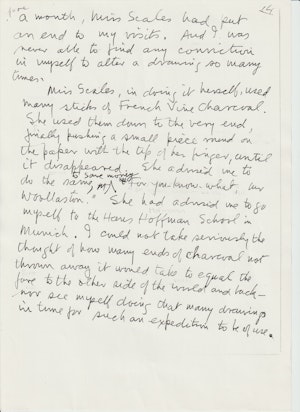 14
fore
a month, Miss Scales had put
an end to my visits. And I was
never able to find any conviction
in myself to alter a drawing so many
times.
Miss Scales, in doing it herself, used
many sticks of French Vine Charcoal.
She used them down to the very end,
finally pushing a small piece round on
the paper with the tip of her finger, until
it disappeared. She advised me to
do the same, to save money, "for you know what, Mr
Woollaston." She had advised me to go
myself to the Hans Hoffman School in
Munich. I could not take seriously the
thought of how many ends of charcoal not
thrown away it would take to equal the
fare to the other side of the world and back—
nor see myself doing that many drawings
in time for such an expedition to be of use.